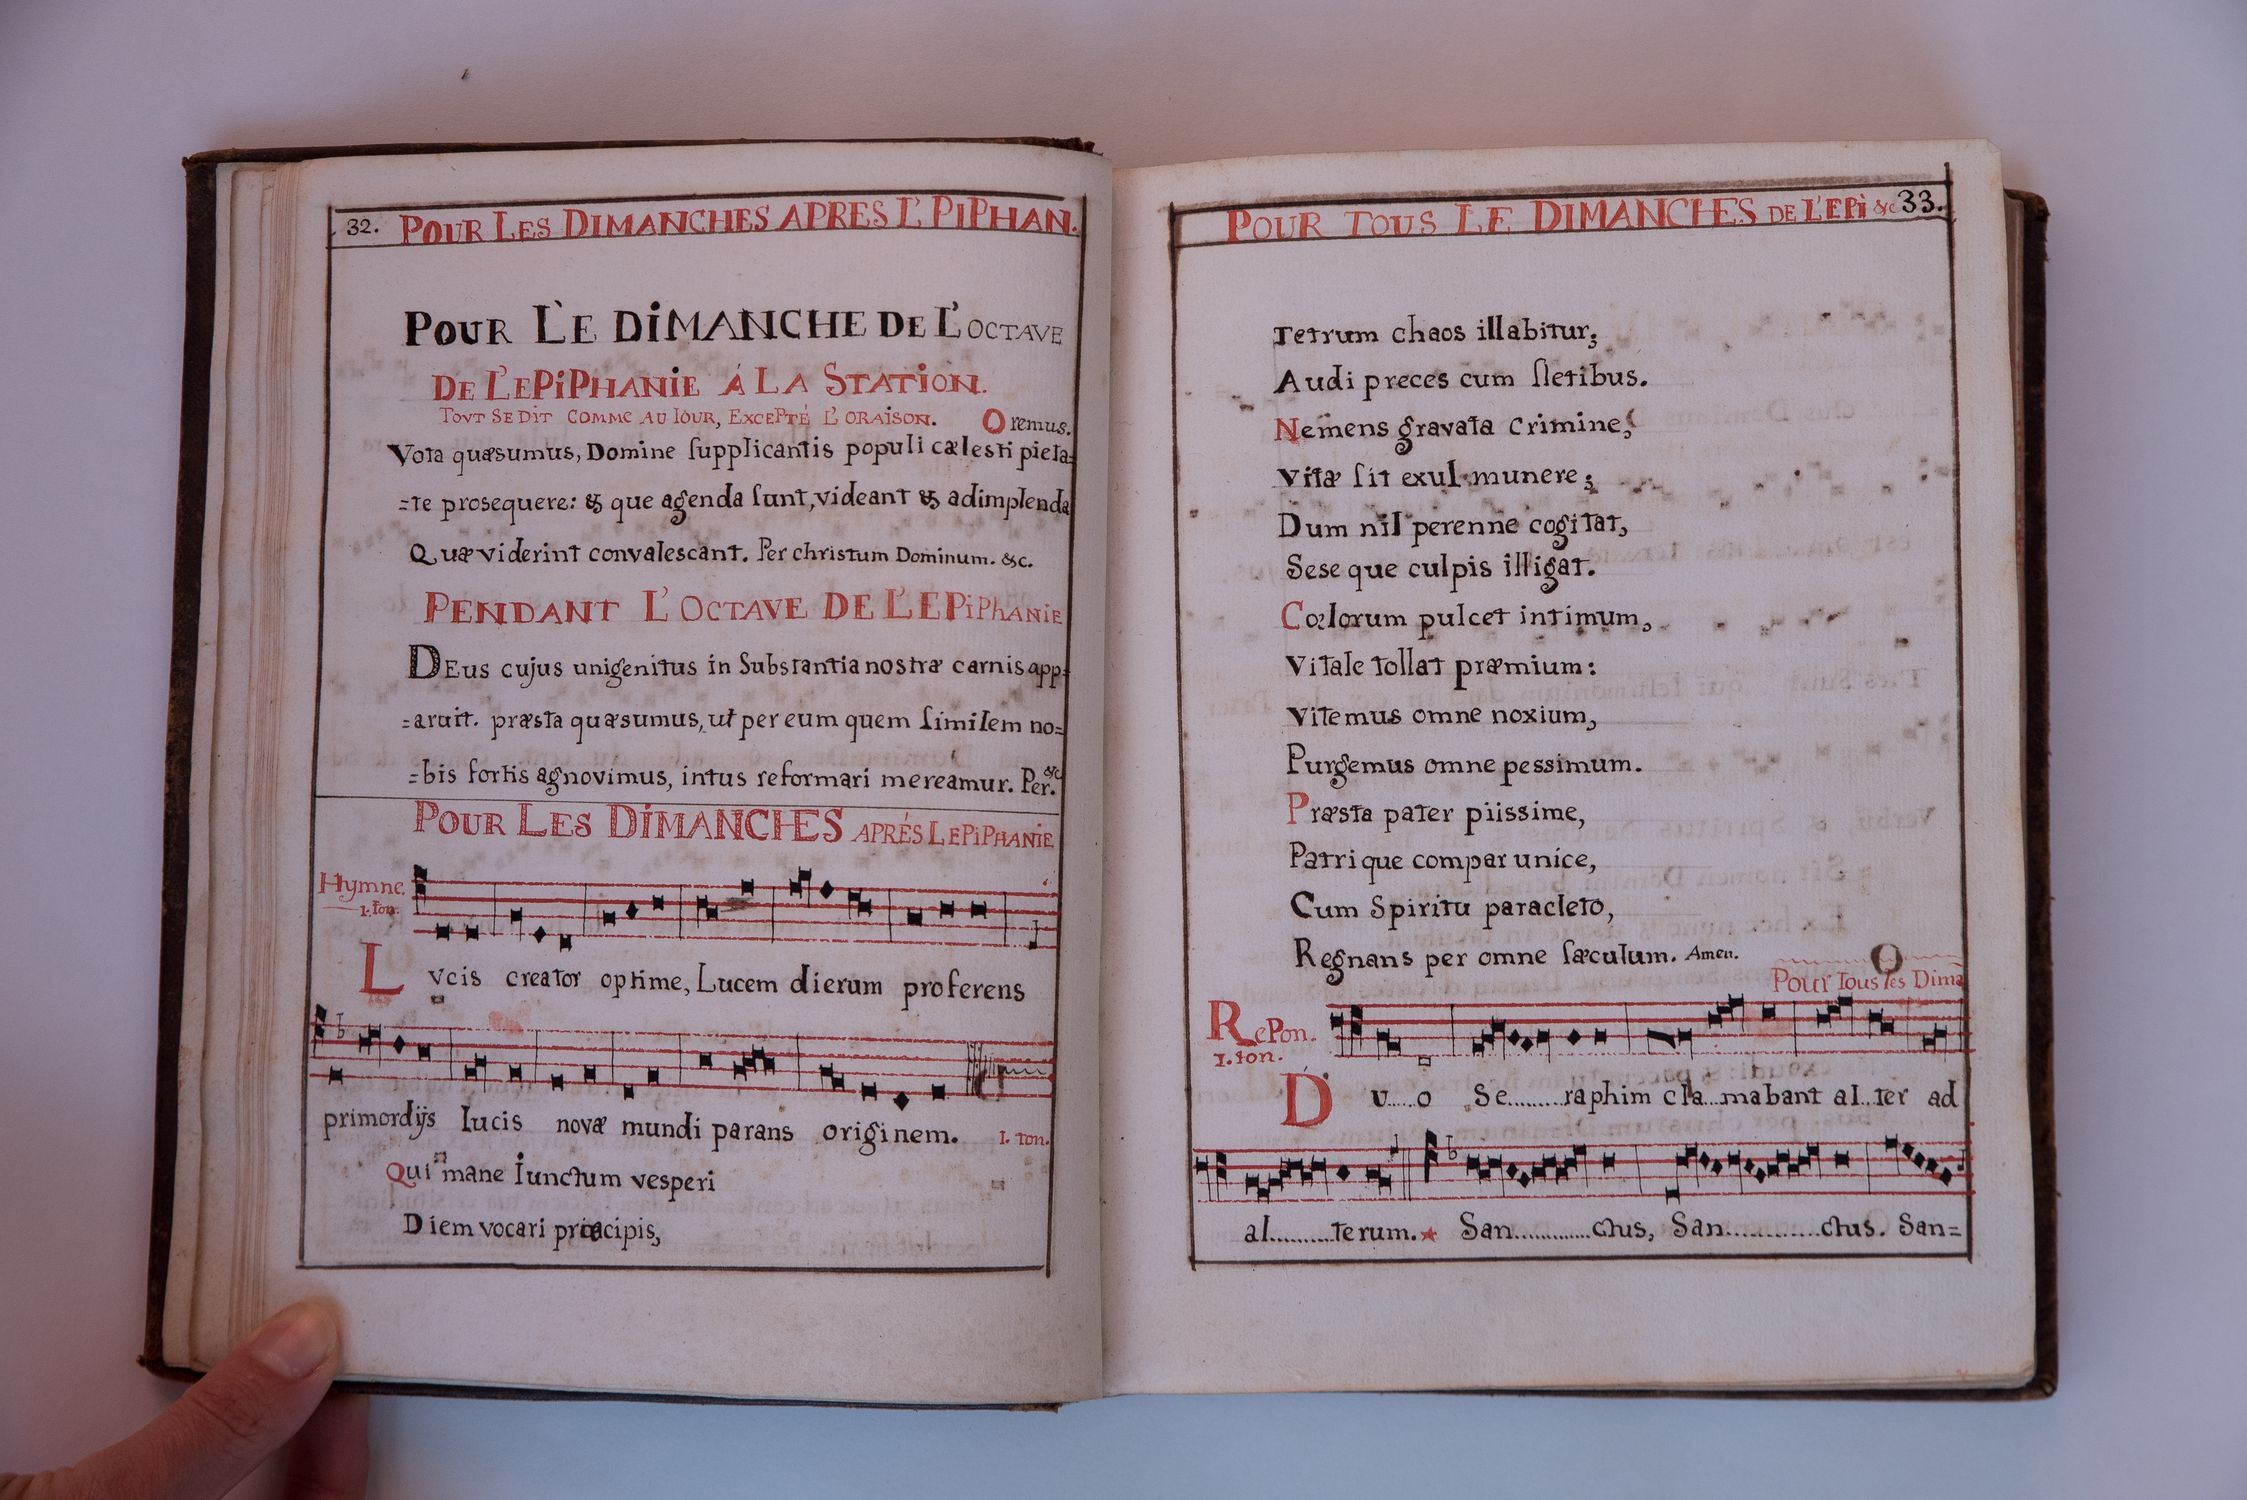 32. POUR LES DIMANCHES APRES L'PIPHAN.
POUR LE DIMANCHE DE L'OCTAVE
DE L'EPIPHANIE Á LA STATION.
TOVT SE DIT COMME AU IOUR, EXCEPTÉ L'ORAISON. Oremus.
Vota quæsumus, Domine ſupplicantis populi cælesti pieta=
=te prosequere: & que agenda ſunt, videant & adimplenda
Quæ viderint convalescant. Per christum Dominum. &c.
PENDANT L'OCTAVE DE L'EPIPHANIE
DEus cujus unigenitus in Substantia nostræ carnis app=
=aruit. præsta quæsumus, ut per eum quem ſimilem no=
=bis fortis agnovimus, intus reformari mereamur. Per. &c
POUR LES DIMANCHES APRÉS LEPIPHANIE
Hymne.
1. ton.
Lvcis creator optime, Lucem dierum proferens
primordijs lucis novæ mundi parans originem. 1. ton.
Qui mane Iunctum vesperi
Diem vocari præcipis,
POUR TOUS LE DIMANCHES DE L'EPI &c 33.
Tetrum chaos illabitur;
Audi preces cum fletibus.
Nemens gravata crimine,
Vitæ ſit exul munere;
Dum nil perenne cogitat,
Sese que culpis illigat.
Cœlorum pulcet intimum,
Vitale tollat præmium:
Vitemus omne noxium,
Purgemus omne pessimum.
Præsta pater piissime,
Patrique compar unice,
Cum Spiritu paracleto,
Regnans per omne ſæculum. Amen.
Pour Tous les Dima
RePon.
1. ton.
Dv....o Se........raphim cla...mabant al..ter ad
al.........terum.* San............ctus, San.............ctus. San=